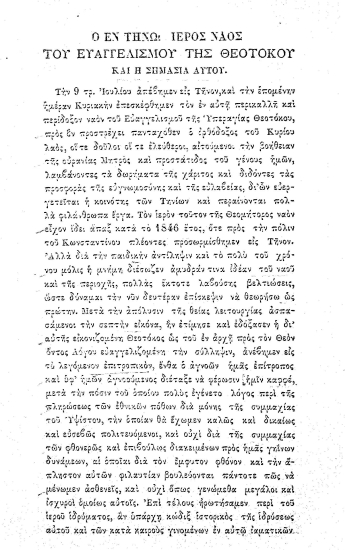 Ο ΕΝ ΤΗΝΩ, ΙΕΡΟΣ ΝΑΟΣ
ΤΟΥ ΕΥΑΓΓΕΛΙΣΜΟΥ ΤΗΣ ΘΕΟΤΟΚΟΥ
ΚΑΙ Η ΣΗΜΑΣΙΑ ΑΥΤΟΥ.
Τὴν 9 τρ. Ἰουλίου ἀπέβημεν εἰς Τῆνον, καὶ τὴν ἑπομένην
ἡμέραν Κυριακὴν ἐπεσκέφθημεν τὸν ἐν αὐτῇ περικαλλῆ καὶ
περίδοξον ναὸν τοῦ Εὐαγγελισμοῦ τῆς Ὑπεραγίας Θεοτόκου,
πρὸς ὃν προστρέχει πανταχόθεν ὁ ὀρθόδοξος τοῦ Κυρίου
λαός, οἵτε δοῦλοι οἵ τε ἐλεύθεροι, αἰτούμενοι τὴν βοήθειαν
τῆς οὐρανίας Μητρὸς καὶ προστάτιδος τοῦ γένους ἡμῶν,
λαμβάνοντες τὰ δωρήματα τῆς χάριτος καὶ διδόντες τὰς
προσφορὰς τῆς εὐγνωμοσύνης καὶ τῆς εὐλαβείας, δι᾽ὧν εὐερ-
γετεῖται ἡ κοινότης τῶν Τηνίων καὶ περαίνονται πολ-
λὰ φιλάνθρωπα ἔργα. Τὸν ἱερὸν τοῦτον τῆς Θεομήτορος ναὸν
εἶχον ἰδεῖ ἅπαξ κατὰ τὸ 1846 ἔτος, ὅτε πρὸς τὴν πόλιν
τοῦ Κωνσταντίνου πλέοντες προσωρμίσθημεν εἰς Τῆνον.
Ἀλλὰ διὰ τὴν παιδικὴν ἀντίληψιν καὶ τὸ πολὺ τοῦ χρό-
νου μόλις ἡ μνήμη διέσωζεν ἀμυδράν τινα ἰδέαν τοῦ ναοῦ
καὶ τῆς περιοχῆς, πολλὰς ἔκτοτε λαβούσης βελτιώσεις,
ὥστε δύναμαι τὴν νῦν δευτέραν ἐπίσκεψιν νὰ θεωρήσω ὡς
πρώτην. Μετὰ τὴν ἀπόλυσιν τῆς θείας λειτουργίας ἀσπα-
σάμενοι τὴν σεπτὴν εἰκόνα, ἣν ἐτίμησε καὶ ἐδόξασεν ἡ δι᾽
αὐτῆς εἰκονιζομένη Θεοτόκος ὡς τοῦ ἐν ἀρχῇ πρὸς τὸν Θεὸν
ὄντος Λόγου εὐαγγελιζομένη τὴν σύλληψιν, ἀνέβημεν εἰς
τὸ λεγόμενον ἐπιτροπικόν, ἔνθα ὁ ἀγνοῶν ἡμᾶς ἐπίτροπος
καὶ ὑφ᾽ ἡμῶν ἀγνοούμενος διέταξε νὰ φέρωσιν ἡμῖν καφφέ,
μετὰ τὴν πόσιν τοῦ ὁποίου πολὺς ἐγένετο λόγος περὶ τῆς
πληρώσεως τῶν ἐθνικῶν πόθων διὰ μόνης τῆς συμμαχίας
τοῦ Ὑψίστου, τὴν ὁποίαν θὰ ἔχωμεν καλῶς καὶ δικαίως
καὶ εὐσεβῶς πολιτευόμενοι, καὶ οὐχὶ διὰ τῆς συμμαχίας
τῶν φθονερῶς καὶ ἐπιβούλως διακειμένων πρὸς ἡμᾶς γηΐνων
δυνάμεων, αἱ ὁποῖαι διὰ τὸν ἔμφυτον φθόνον καὶ τὴν ἄ-
πληστον αὐτῶν φιλαυτίαν βουλεύονται πάντοτε πῶς νὰ
μένωμεν ἀσθενεῖς, καὶ οὐχὶ ὅπως γενώμεθα μεγάλοι καὶ
ἰσχυροὶ ὁμοίως αὐτοῖς. Ἐπὶ τέλους ἠρωτήσαμεν περὶ τοῦ
ἱεροῦ ἱδρύματος, ἂν ὑπάρχῃ κώδιξ ἱστορικὸς τῆς ἱδρύσεως
αὐτοῦ καὶ τῶν κατὰ καιροὺς γινομένων ἐν αὐτῷ ἰαματικῶν